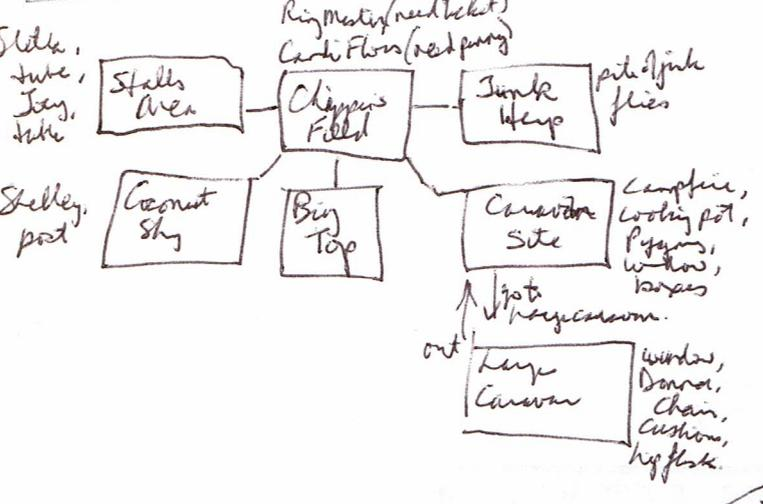 Ring Master (need ticket)
Candi Floss (need penny)
table,
Joey,
table
Stalls
Area
Field
Junk
Heap
pile of junk
flies
Shelley,
post
Coconut
Shy
Big
Top
Caravan
Site
Campfire,
cooking pot,
window,
boxes
go to
large caravan.
out
Large
Caravan
window,
Donna,
Chair,
Cushions,
hip flask.